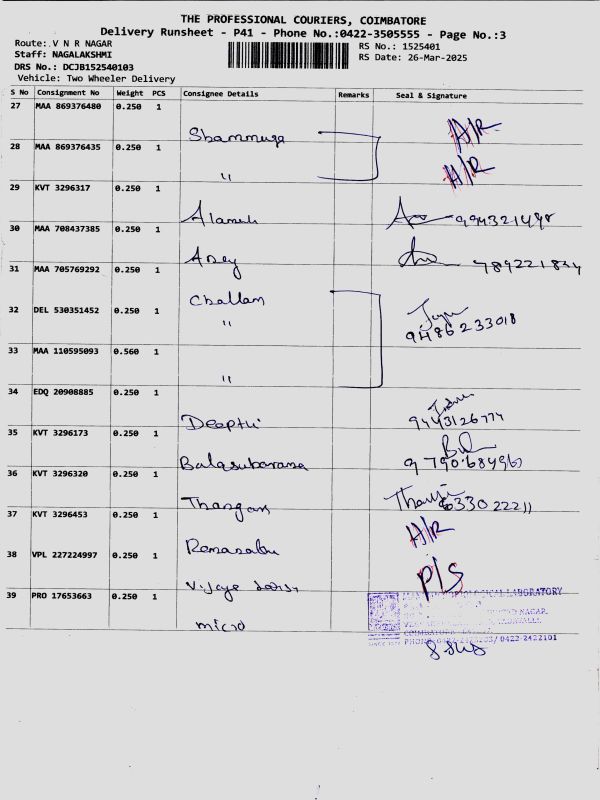 THE PROFESSIONAL COURIERS, COIMBATORE
Delivery Runsheet - P41 - Phone No.:0422-3505555 - Page No.:3
Route: V N R NAGAR
RS No.: 1525401
Staff: NAGALAKSHMI
RS Date: 26-Mar-2025
DRS No.: DCJB152540103
Vehicle: Two Wheeler Delivery
S No Consignment No Weight PCS Consignee Details Remarks Seal & Signature
27 MAA 869376480 0.250 1
Shammuga H/R
28 MAA 869376435 0.250 1
" H/R
29 KVT 3296317 0.250 1
30 MAA 708437385 0.250 1
31 MAA 705769292 0.250 1
Challam
32 DEL 530351452 0.250 1
" 9486233018
33 MAA 110595093 0.560 1
"
34 EDQ 20908885 0.250 1
Deepthi 9443126774
35 KVT 3296173 0.250 1
36 KVT 3296320 0.250 1
37 KVT 3296453 0.250 1
H/R
38 VPL 227224997 0.250 1
P/S
39 PRO 17653663 0.250 1
micro
LABORATORY
NAGAR,
COIMBATORE
PHONE: 0422-2422103/0422-2422101